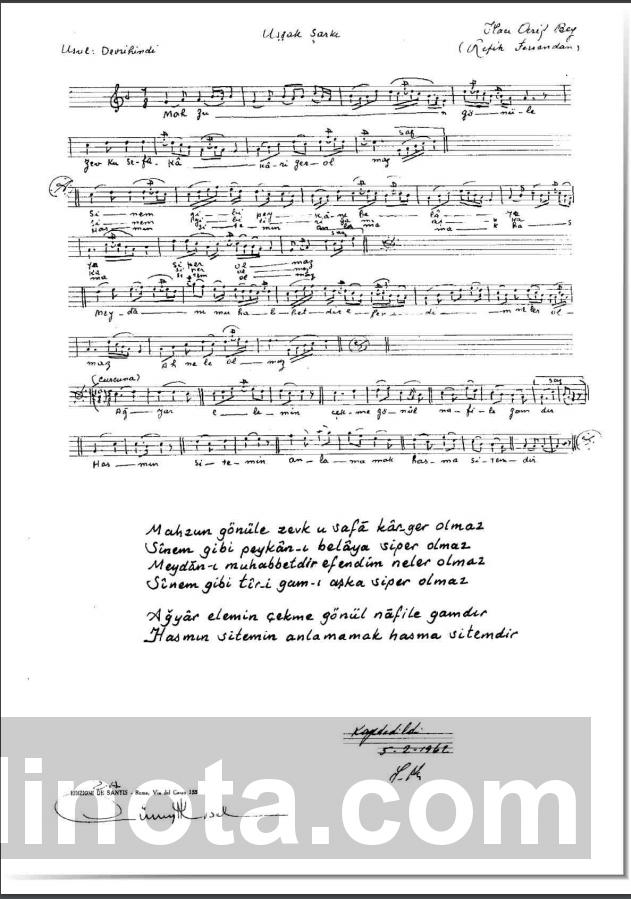 Uşşak Şarkı
Hacı Arif Bey
Usul: Devrihindi
(Refik Fersandan)
Mah zu n gö nü le
zev ku se fa kâ kâ ri ger ol maz
saz
Si nem gi bi pey kâ ne be lâ ya
Si nem gi bi
Has min si te min an la ma ma k ha s
ya si per ol maz
si per ol maz
ma si tem ol maz
saz
Mey da nı mu ha b bet dir e fen di m ne ler ol
maz Ah ne le ol maz
(Curcuna)
saz
Ağ yar e le min çek me gö nül na fi le gam dır
Has mın si te min an la ma mak has ma si tem dir
Mahzun gönüle zevk u safâ kâr-ger olmaz
Sînem gibi peykân-ı belâya siper olmaz
Meydân-ı muhabbetdir efendim neler olmaz
Sînem gibi tîr-i gam-ı aşka siper olmaz
Ağyâr elemin çekme gönül nâfile gamdır
Hasmın sitemin anlamamak hasma sitemdir
Kaydedildi
5-2-1962
EDIZIONI DE SANTIS - Roma, Via del Corso 133
dinota.com